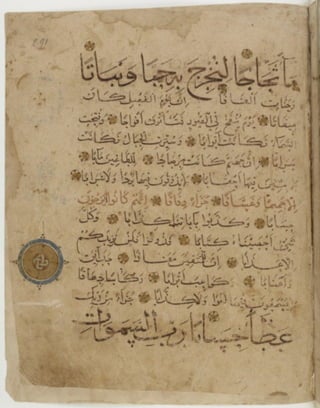 مَاءً ثَجَّاجًا لِنُخْرِجَ بِهِ حَبًّا وَنَبَاتًا
وَجَنَّاتٍ أَلْفَافًا إِنَّ يَوْمَ الْفَصْلِ كَانَ
مِيقَاتًا يَوْمَ يُنْفَخُ فِي الصُّورِ فَتَأْتُونَ أَفْوَاجًا وَفُتِحَتِ
السَّمَاءُ فَكَانَتْ أَبْوَابًا وَسُيِّرَتِ الْجِبَالُ فَكَانَتْ
سَرَابًا إِنَّ جَهَنَّمَ كَانَتْ مِرْصَادًا لِلطَّاغِينَ مَآبًا
لَابِثِينَ فِيهَا أَحْقَابًا لَا يَذُوقُونَ فِيهَا بَرْدًا وَلَا شَرَابًا
إِلَّا حَمِيمًا وَغَسَّاقًا جَزَاءً وِفَاقًا إِنَّهُمْ كَانُوا لَا يَرْجُونَ
حِسَابًا وَكَذَّبُوا بِآيَاتِنَا كِذَّابًا وَكُلَّ
شَيْءٍ أَحْصَيْنَاهُ كِتَابًا فَذُوقُوا فَلَنْ نَزِيدَكُمْ
إِلَّا عَذَابًا إِنَّ لِلْمُتَّقِينَ مَفَازًا حَدَائِقَ
وَأَعْنَابًا وَكَوَاعِبَ أَتْرَابًا وَكَأْسًا دِهَاقًا
لَا يَسْمَعُونَ فِيهَا لَغْوًا وَلَا كِذَّابًا جَزَاءً مِنْ رَبِّكَ
عَطَاءً حِسَابًا رَبِّ السَّمٰوَاتِ